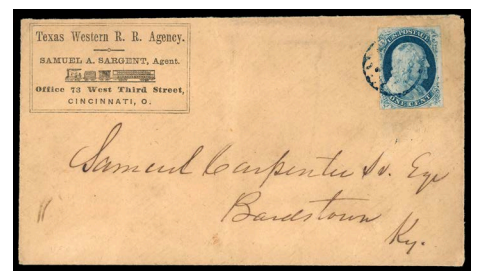 Texas Western R. R. Agency.
SAMUEL A. SARGENT, Agent.
Office 73 West Third Street,
CINCINNATI, O.
U.S. POSTAGE
ONE CENT
Samuel Carpenter Sr. Esqr
Bardstown
Ky.